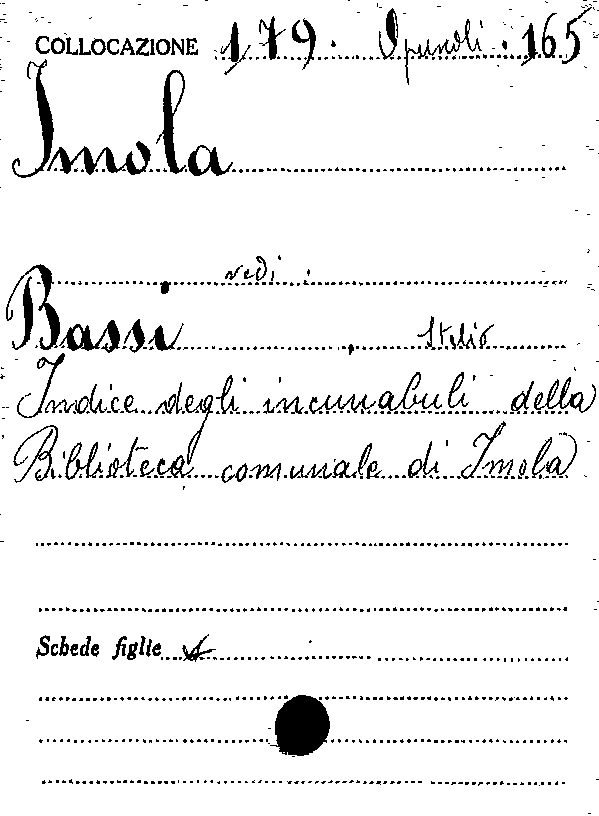 COLLOCAZIONE 179. Opuscoli. 165
Imola
vedi:
Bassi, Stelio
Indice degli incunabuli della
Biblioteca comunale di Imola
Schede figlie